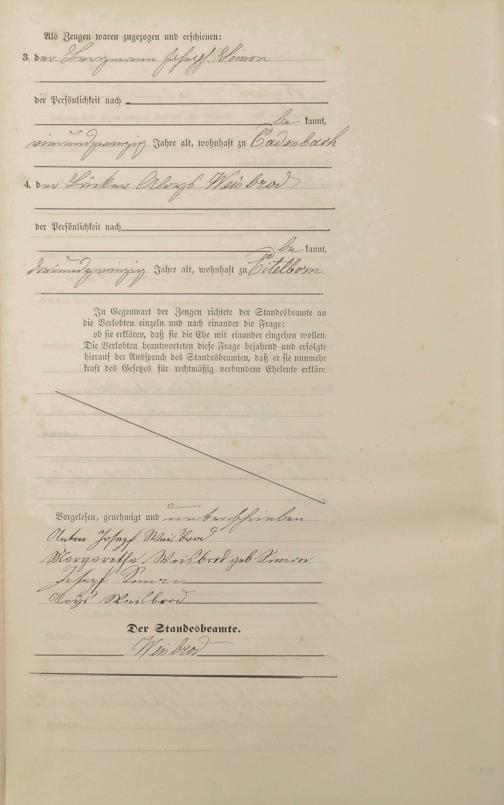 Als Zeugen waren zugezogen und erschienen:
3. der Bergmann Joseph Simon
der Persönlichkeit nach
be kannt,
vierundzwanzig Jahre alt, wohnhaft zu Cadenbach
4. der Bäcker Aloys Weisbrod
der Persönlichkeit nach
be kannt,
dreiundzwanzig Jahre alt, wohnhaft zu Eitelborn
In Gegenwart der Zeugen richtete der Standesbeamte an
die Verlobten einzeln und nach einander die Frage:
ob sie erklären, daß sie die Ehe mit einander eingehen wollen.
Die Verlobten beantworteten diese Frage bejahend und erfolgte
hierauf der Ausspruch des Standesbeamten, daß er sie nunmehr
kraft des Gesetzes für rechtmäßig verbundene Eheleute erkläre.
Vorgelesen, genehmigt und unterschrieben
Anton Josepf Weisbrod
Margaretha Weisbrod geb Simon
Josepf Simon
Aloys Weisbrod
Der Standesbeamte.
Weisbrod